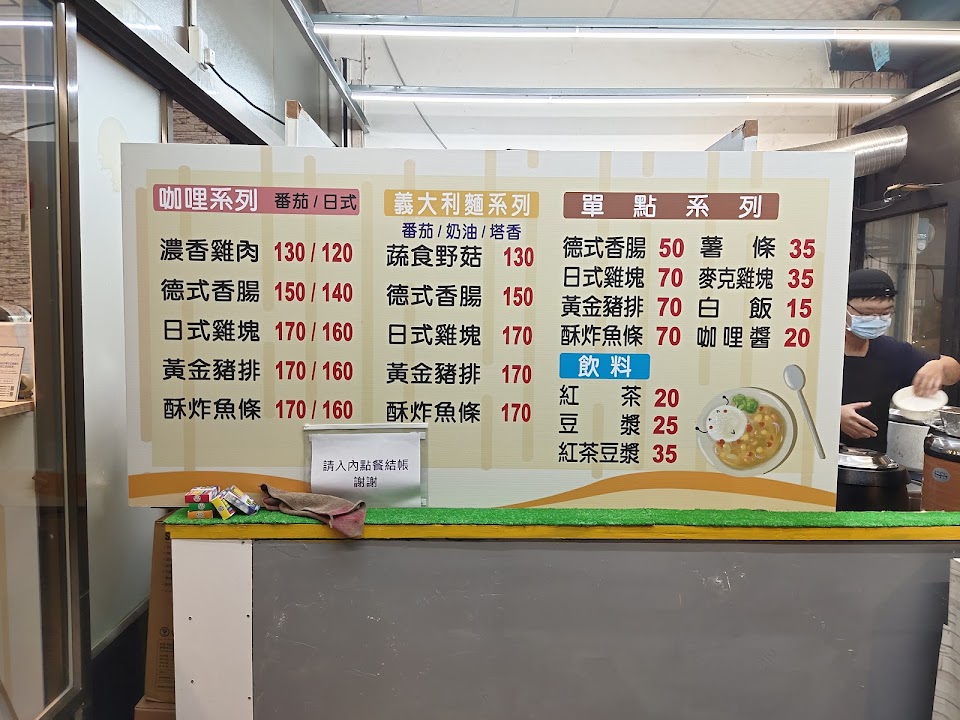 咖哩系列 番茄/日式
濃香雞肉 130/120
德式香腸 150/140
日式雞塊 170/160
黃金豬排 170/160
酥炸魚條 170/160
義大利麵系列
番茄/奶油/塔香
蔬食野菇 130
德式香腸 150
日式雞塊 170
黃金豬排 170
酥炸魚條 170
單點系列
德式香腸 50 薯條 35
日式雞塊 70 麥克雞塊 35
黃金豬排 70 白飯 15
酥炸魚條 70 咖哩醬 20
飲料
紅茶 20
豆漿 25
紅茶豆漿 35
請入內點餐結帳
謝謝